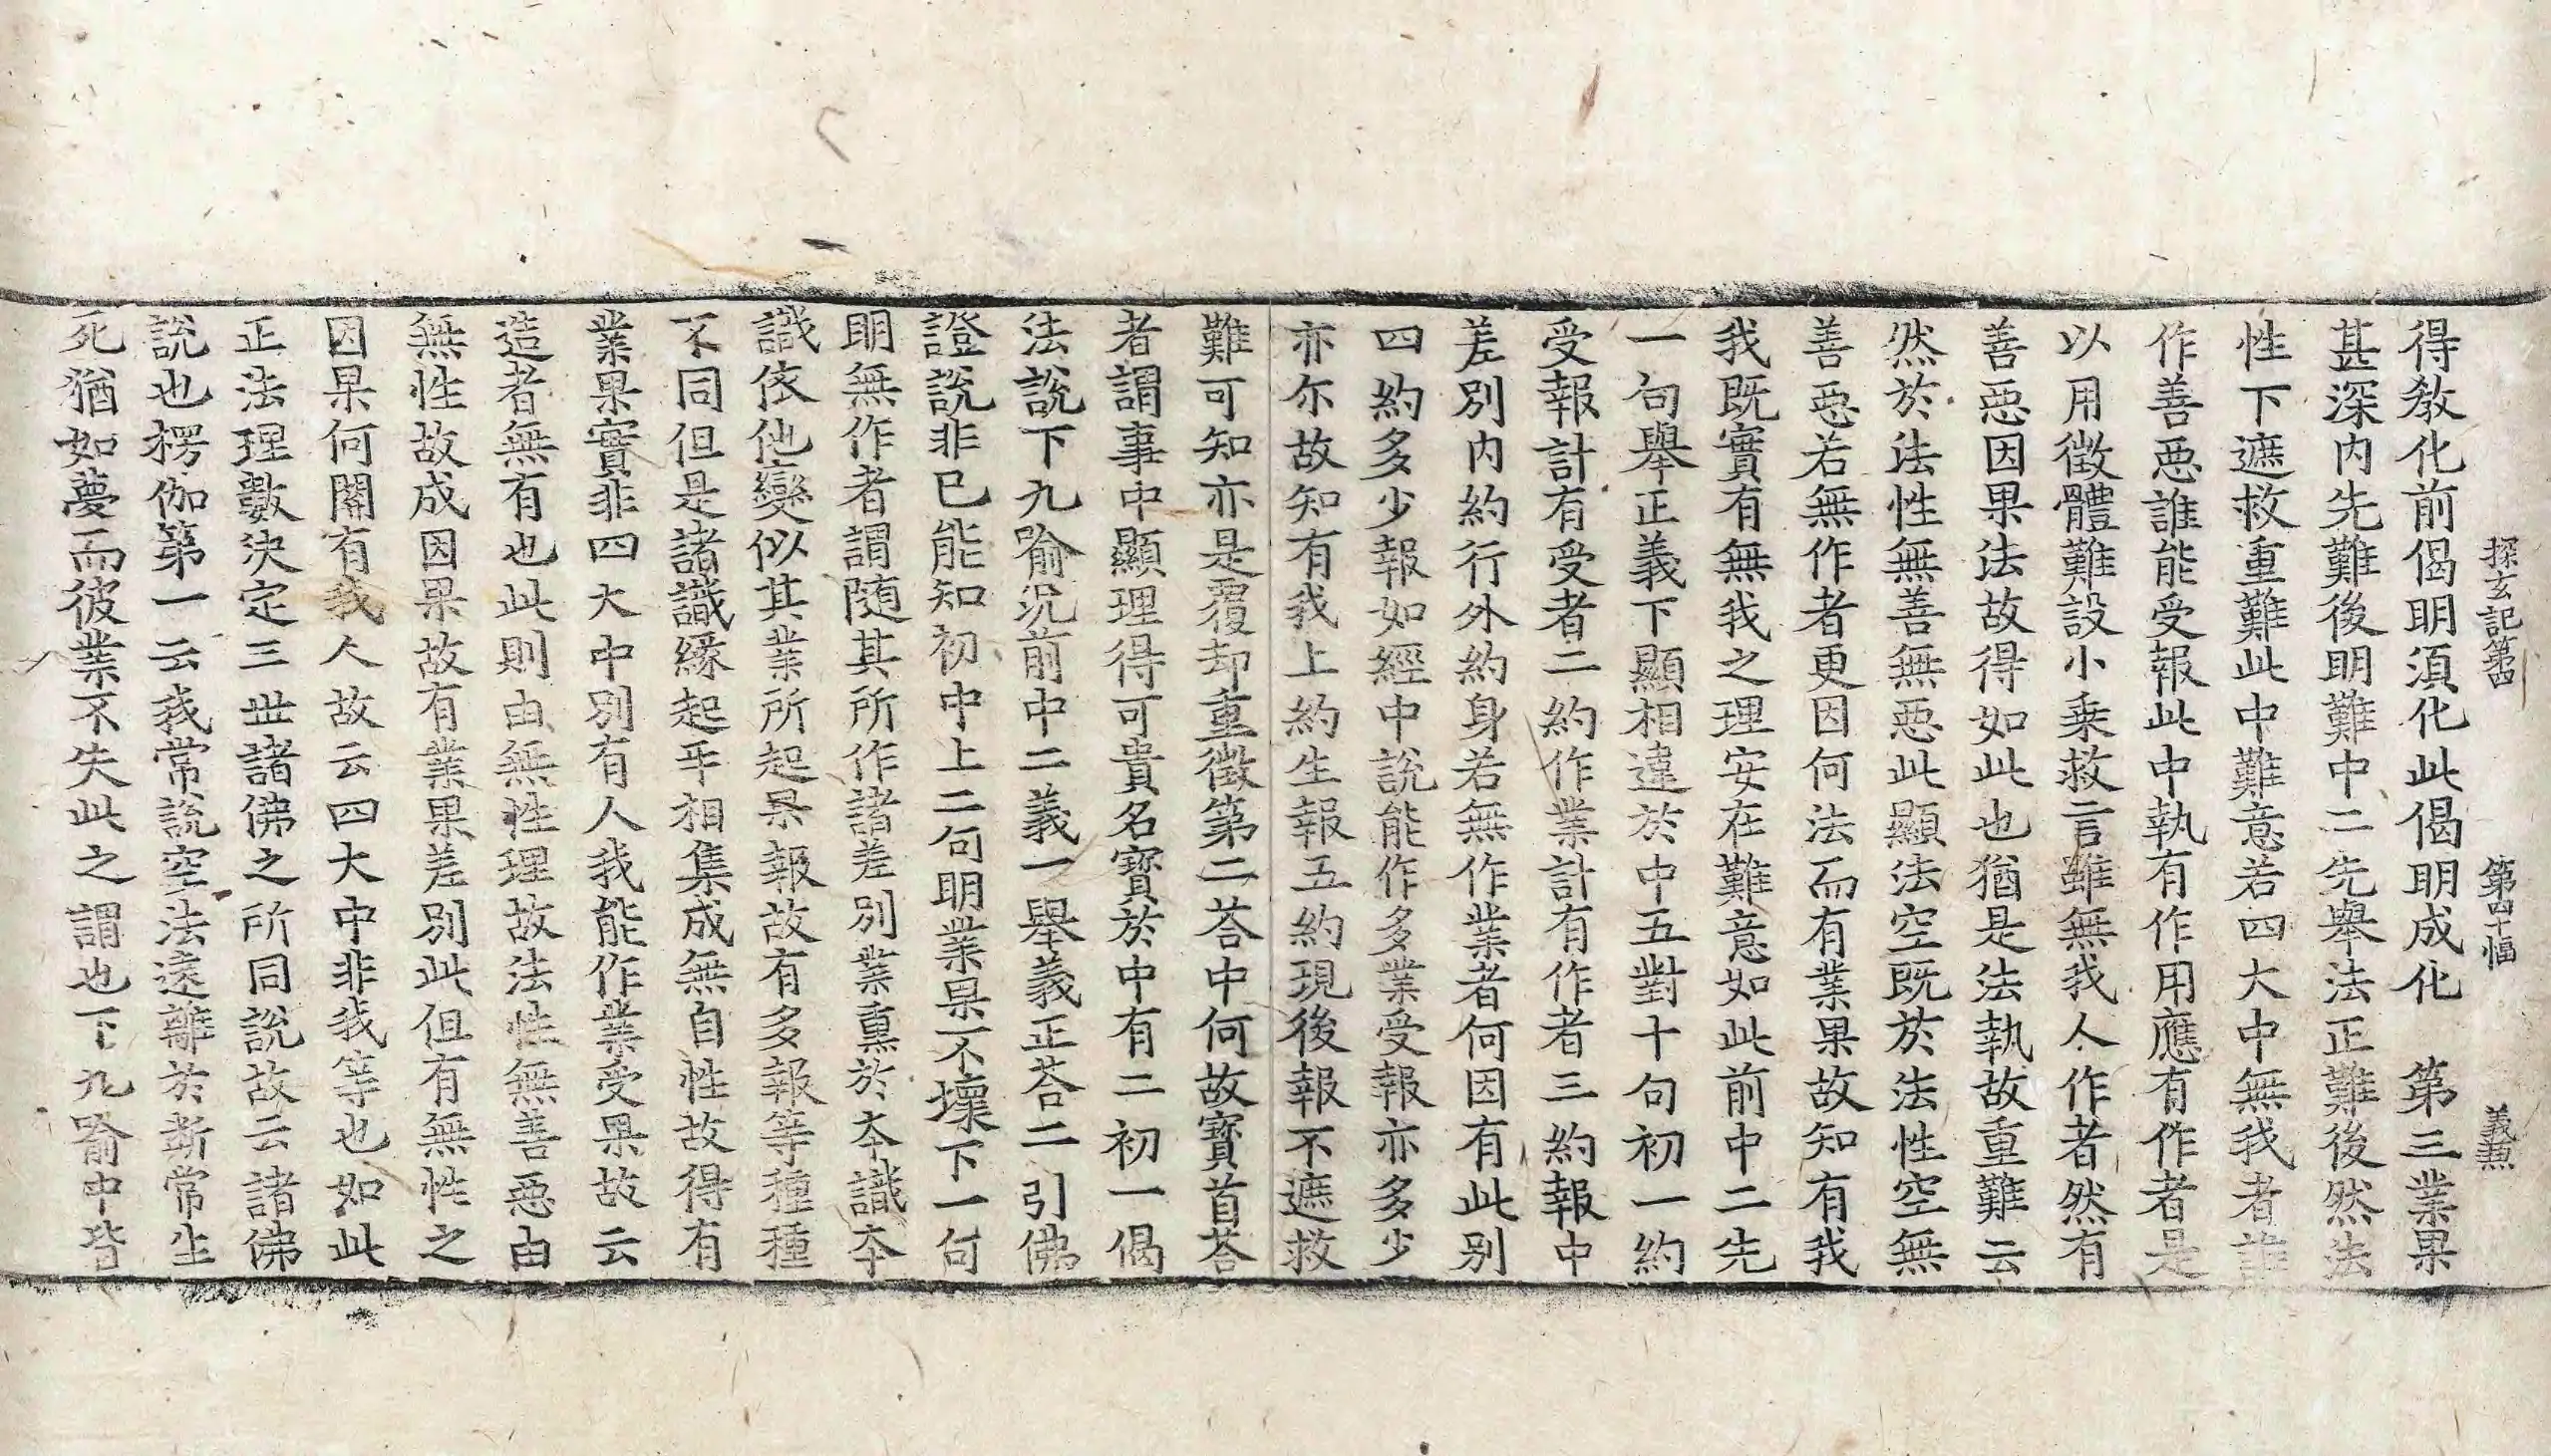 探玄記第四 第四十幅 義䕃
得教化前偈明須化此偈明成化 第三業果
甚深内先難後明難中二先舉法正難後然法
性下遮救重難此中難意若四大中無我者誰
作善惡誰能受報此中執有作用應有作者是
以用徵體難設小乗救言雖無我人作者然有
善惡因果法故得如此也猶是法執故重難云
然於法性無善無惡此顯法空既於法性空無
善惡若無作者更因何法而有業果故知有我
我既實有無我之理安在難意如此前中二先
一句舉正義下顯相違於中五對十句初一約
受報計有受者二約作業計有作者三約報中
差別内約行外約身若無作業者何因有此别
四約多少報如經中説能作多業受報亦多少
亦尔故知有我上約生報五約現後報不遮救
難可知亦是覆却重徵第二荅中何故寳首荅
者謂事中顯理得可貴名寳於中有二初一偈
法說下九喻况前中二義一舉義正荅二引佛
證説非已能知初中上二句明業果不壞下一句
明無作者謂随其所作諸差别業熏於夲識夲
識依他變似其業所起果報故有多報等種種
不同但是諸識緣起㸦相集成無自性故得有
業果實非四大中别有人我能作業受果故云
造者無有也此則由無性理故法性無善惡由
無性故成因果故有業果差别此但有無性之
因果何關有我人故云四大中非我等也如此
正法理數決定三世諸佛之所同說故云諸佛
說也楞伽第一云我常說空法遠離於断常生
死猶如夢而彼業不失此之謂也下九喻中皆